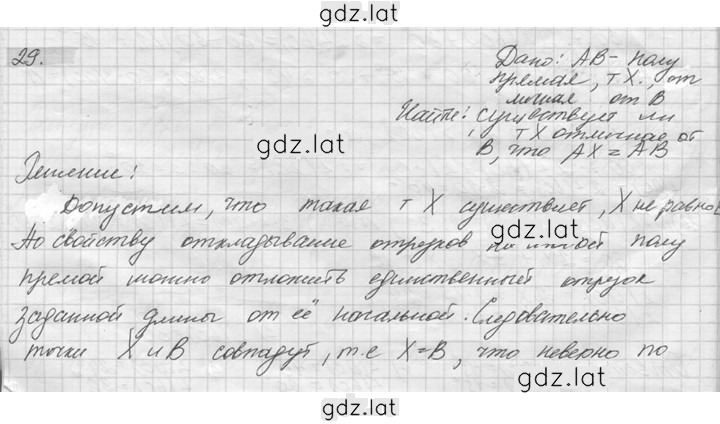 gdz.lat
29.
Дано: АВ - полу
прямая, т Х., от
личная от В
gdz.lat
Найти: существует ли
т Х отличное от
В, что АХ = АВ
gdz.lat
gdz.lat
Решение:
Допустим, что такая т Х существует, Х не равно В
По свойству откладывание отрезков на полу
gdz.lat
прямой можно отложить единственный отрезок
gdz.lat
заданной длины от её начальной. Следовательно
точки Х и В совпадут, т.е Х=В, что неверно по
gdz.lat
gdz.lat